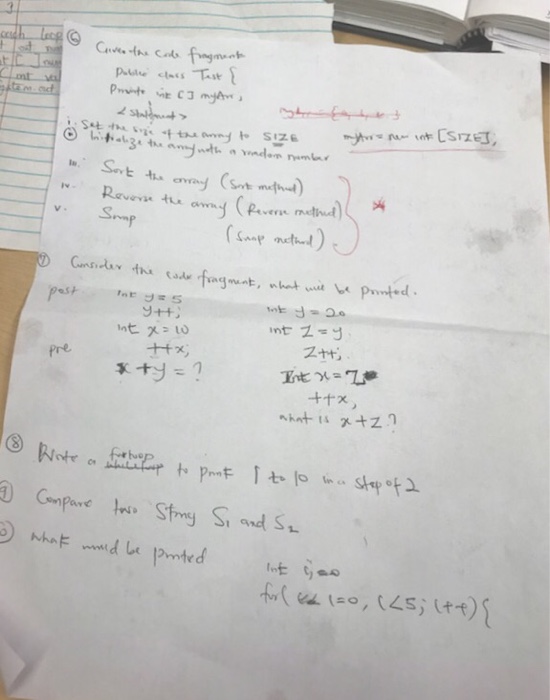 3
each loop
int val
system.out
6 Given the code fragment
Public class Test {
Private int [] myArr;
<Statement>
i. Set the size of the array to SIZE myArr = new int [SIZE];
ii Initialize the array with a random number
iii. Sort the array (Sort method)
iv. Reverse the array (Reverse method)
v. Swap (Swap method)
7 Consider the code fragment, what will be printed.
post int y = 5
y++;
int x = 10
pre ++x;
x + y = ?
int y = 20
int Z = y;
Z++;
Int x = Z
++x,
what is x + Z?
8 Write a for loop to print 1 to 10 in a step of 2
9 Compare two String S1 and S2
what would be printed
int i=0
for( i=0, i<5; i++) {